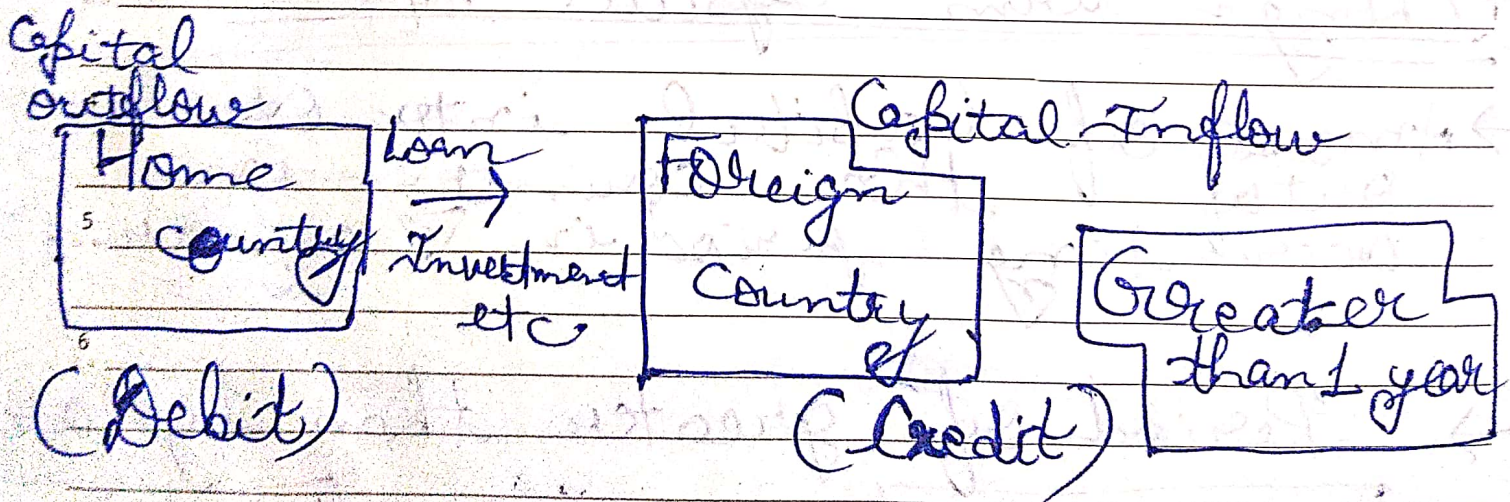 Capital
outflow
Home
country
Loan
Investment
etc
(Debit)
Capital Inflow
Foreign
Country
(Credit)
Greater
than 1 year
5
6